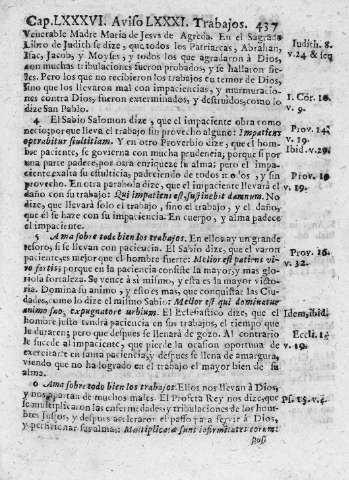 Cap.LXXXVI. Aviſo LXXXI. Trabajos. 437
Venerable Madre Maria de Jesvs de Agreda. En el Sagrado
Libro de Judith ſe dize, que todos los Patriarcas, Abrahan, Judith. 8.
Iſac, Jacob, y Moyſes, y todos los que agradaron à Dios, v.24 &
con muchas tribulaciones fueron probados, y ſe hallaron fie-
les. Pero los que no recibieron los trabajos cõ temor de Dios,
ſino que los llevaron mal con impaciencias, y murmuracio-
nes contra Dios, fueron exterminados, y deſtruidos, como lo I. Cor. 10.
dize San Pablo. v. 9.
4 El Sabio Salomon dize, que el impaciente obra como
necio; porque lleva el trabajo ſin provecho alguno: Impatiens Prov. 14.
operabitur ſtultitiam. Y en otro Proverbio dize, que el hom- v. 19.
bre paciente, ſe govierna con mucha prudencia, porque ſi por Ibid. v. 29.
una parte padece, por otra enriqueze ſu alma; pero el impa-
ciente exalta ſu eſtulticia, padeciendo de todos modos, y ſin
provecho. En otra parabola dize, que el impaciente llevará el Prov. 19
daño con ſu trabajo: Qui impatiens eſt, ſuſtinebit damnum. No v. 19.
dize, que llevará ſolo el trabajo, ſino el trabajo, y el daño,
que èl ſe haze con ſu impaciencia. En cuerpo, y alma padece
el impaciente.
5 Ama ſobre todo bien los trabajos. En ellos ay un grande
teſoro, ſi ſe llevan con paciencia. El Sabio dize, que el varon Prov. 16.
paciente, es mejor que el hombre fuerte: Melior eſt patiens vi- v. 32.
ro forti; porque en la paciencia conſiſte la mayor, y mas glo-
rioſa fortaleza. Se vence à sì miſmo, y eſta es la mayor victo-
ria. Domina ſu animo, y eſſo es mas, que conquiſtar las Ciu-
dades, como lo dize el miſmo Sabio: Melior eſt qui dominatur
animo ſuo, expugnatore urbium. El Ecleſiaſtico dize, que el Idem, ibid.
hombre juſto tendrá paciencia en ſus trabajos, el tiempo que
le duraren; pero que deſpues ſe llenará de gozo. Al contrario Eccli. 1.
le ſucede al impaciente, que pierde la ocaſion oportuna de v. 19.
exercitarſe en ſanta paciencia, y deſpues ſe llena de amargura,
viendo que no ha logrado en el trabajo el mayor bien de ſu
alma.
6 Ama ſobre todo bien los trabajos. Ellos nos llevan à Dios,
y nos apartan de muchos males. El Profeta Rey nos dize, que Pſ. 15. v. 4.
ſe multiplicaron las enfermedades, y tribulaciones de los hom-
bres Juſtos, y deſpues aceleraron el paſſo para ſervir à Dios,
y perficionar ſus almas: Multiplicatæ ſunt infirmitates eorum:
poſt